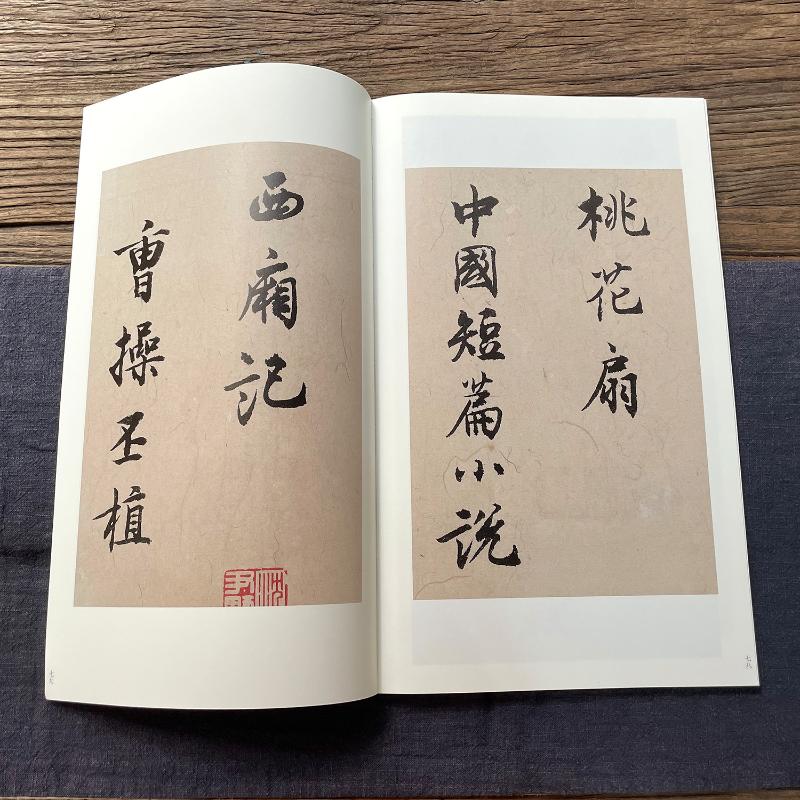 桃花扇
中國短篇小説
七八
西廂記
曹操丕植